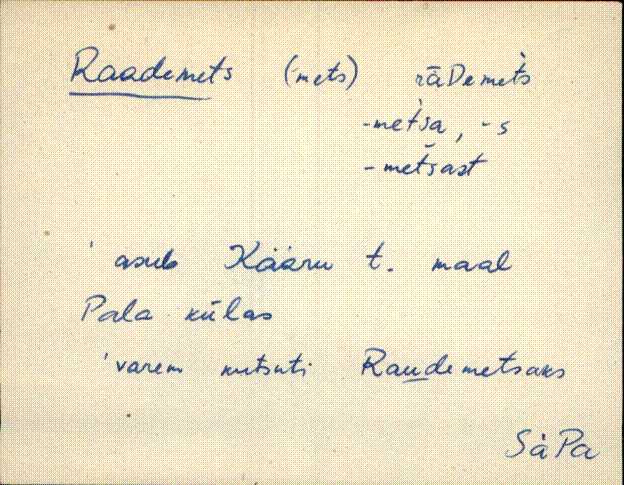 Raademets (mets) rāDemèts
-metsa, -s
-metsast
' asub Kääru t. maal
Pala külas
' varem kutsuti Raudemetsaks
SàPa